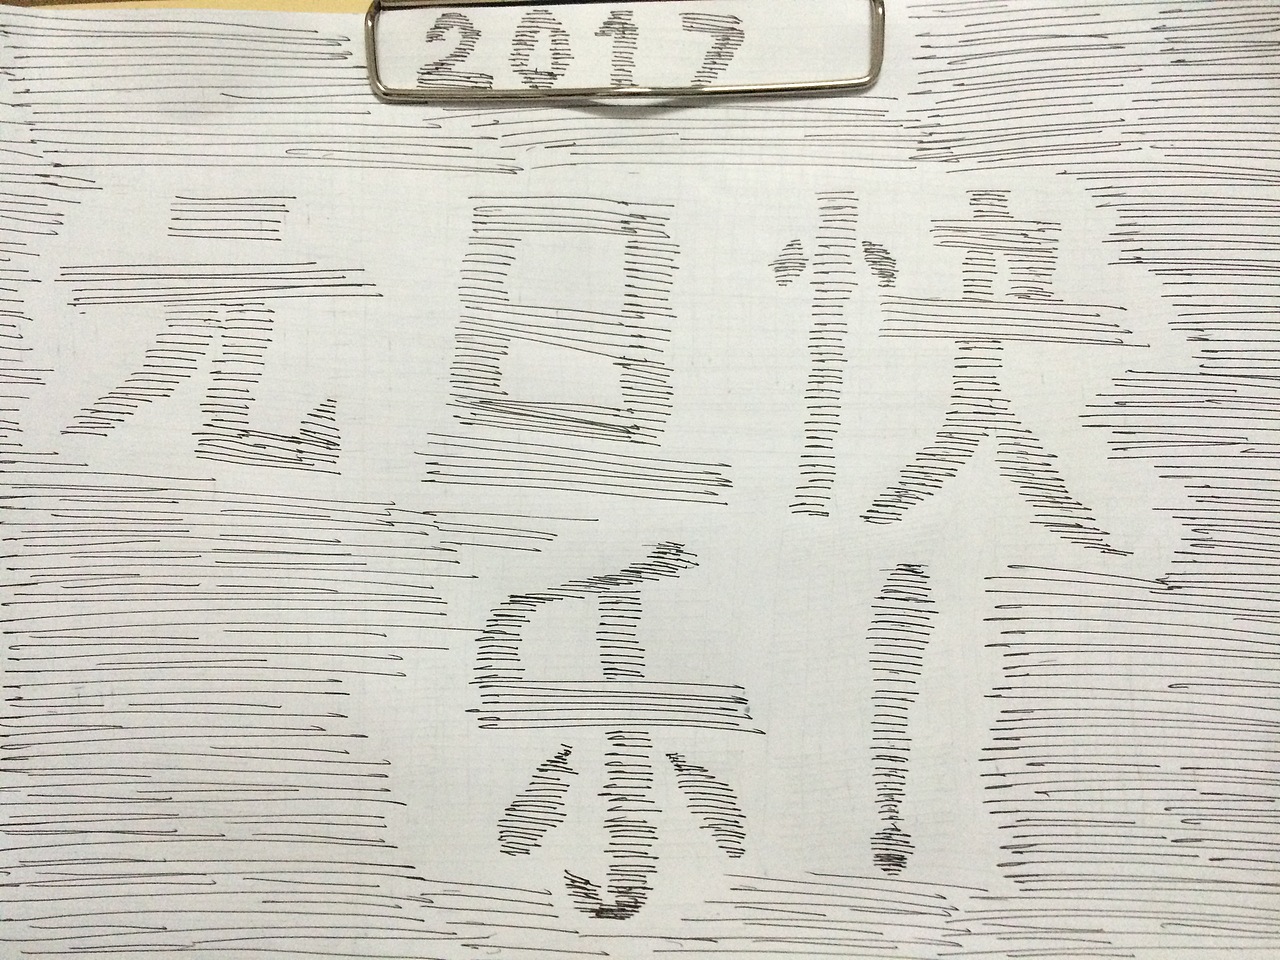 2017
元旦快
乐!